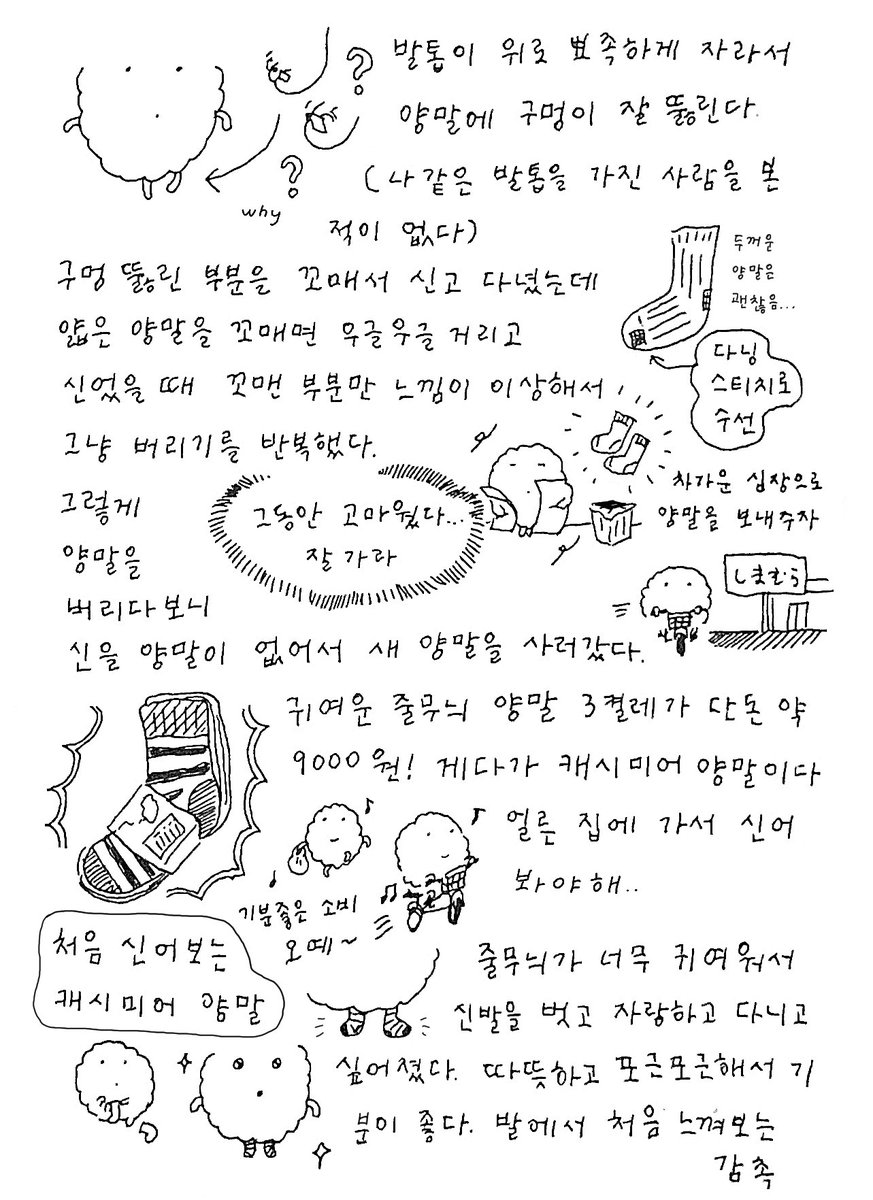 발톱이 위로 뾰족하게 자라서
양말에 구멍이 잘 뚫린다.
(나같은 발톱을 가진 사람을 본
적이 없다)
?
?
why
구멍 뚫린 부분을 꼬매서 신고 다녔는데
얇은 양말을 꼬매면 우글우글 거리고
신었을 때 꼬맨 부분만 느낌이 이상해서
그냥 버리기를 반복했다.
두꺼운
양말은
괜찮음...
다닝
스티치로
수선
그렇게
양말을
버리다보니
신을 양말이 없어서 새 양말을 사러갔다.
그동안 고마웠다...
잘 가라
차가운 심장으로
양말을 보내주자
しまむら
귀여운 줄무늬 양말 3켤레가 단돈 약
9000원! 게다가 캐시미어 양말이다
얼른 집에 가서 신어
봐야해..
기분좋은 소비
오예~
처음 신어보는
캐시미어 양말
줄무늬가 너무 귀여워서
신발을 벗고 자랑하고 다니고
싶어졌다. 따뜻하고 포근포근해서 기
분이 좋다. 발에서 처음 느껴보는
감촉